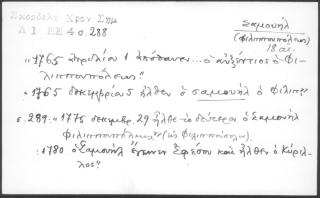 Σκορδέλη Χρον Σημ
Δ Ι ΕΕ 4 σ. 288
Σαμουήλ
(Φιλιππουπόλεως)
18 αι.
„1765 Ἀπριλίου 1 ἀπόθανεν... ὁ αὐξέντιος ὁ Φι-
λιππουπόλεως"
„1765 δεκεμβρίου 5 ἦλθεν ὁ σαμουήλ ὁ Φιλιπ"
σ. 289: „1775 δεκεμβρ. 29 ἦλθε τὸ δεύτερον ὁ Σαμουήλ
Φιλιππουπόλεως" (εἰς Φιλιππούπολιν).
: 1780 ὁ Σαμουήλ ἔγεινεν Ἐφέσου καὶ ἦλθεν ὁ Κύριλ-
λος"